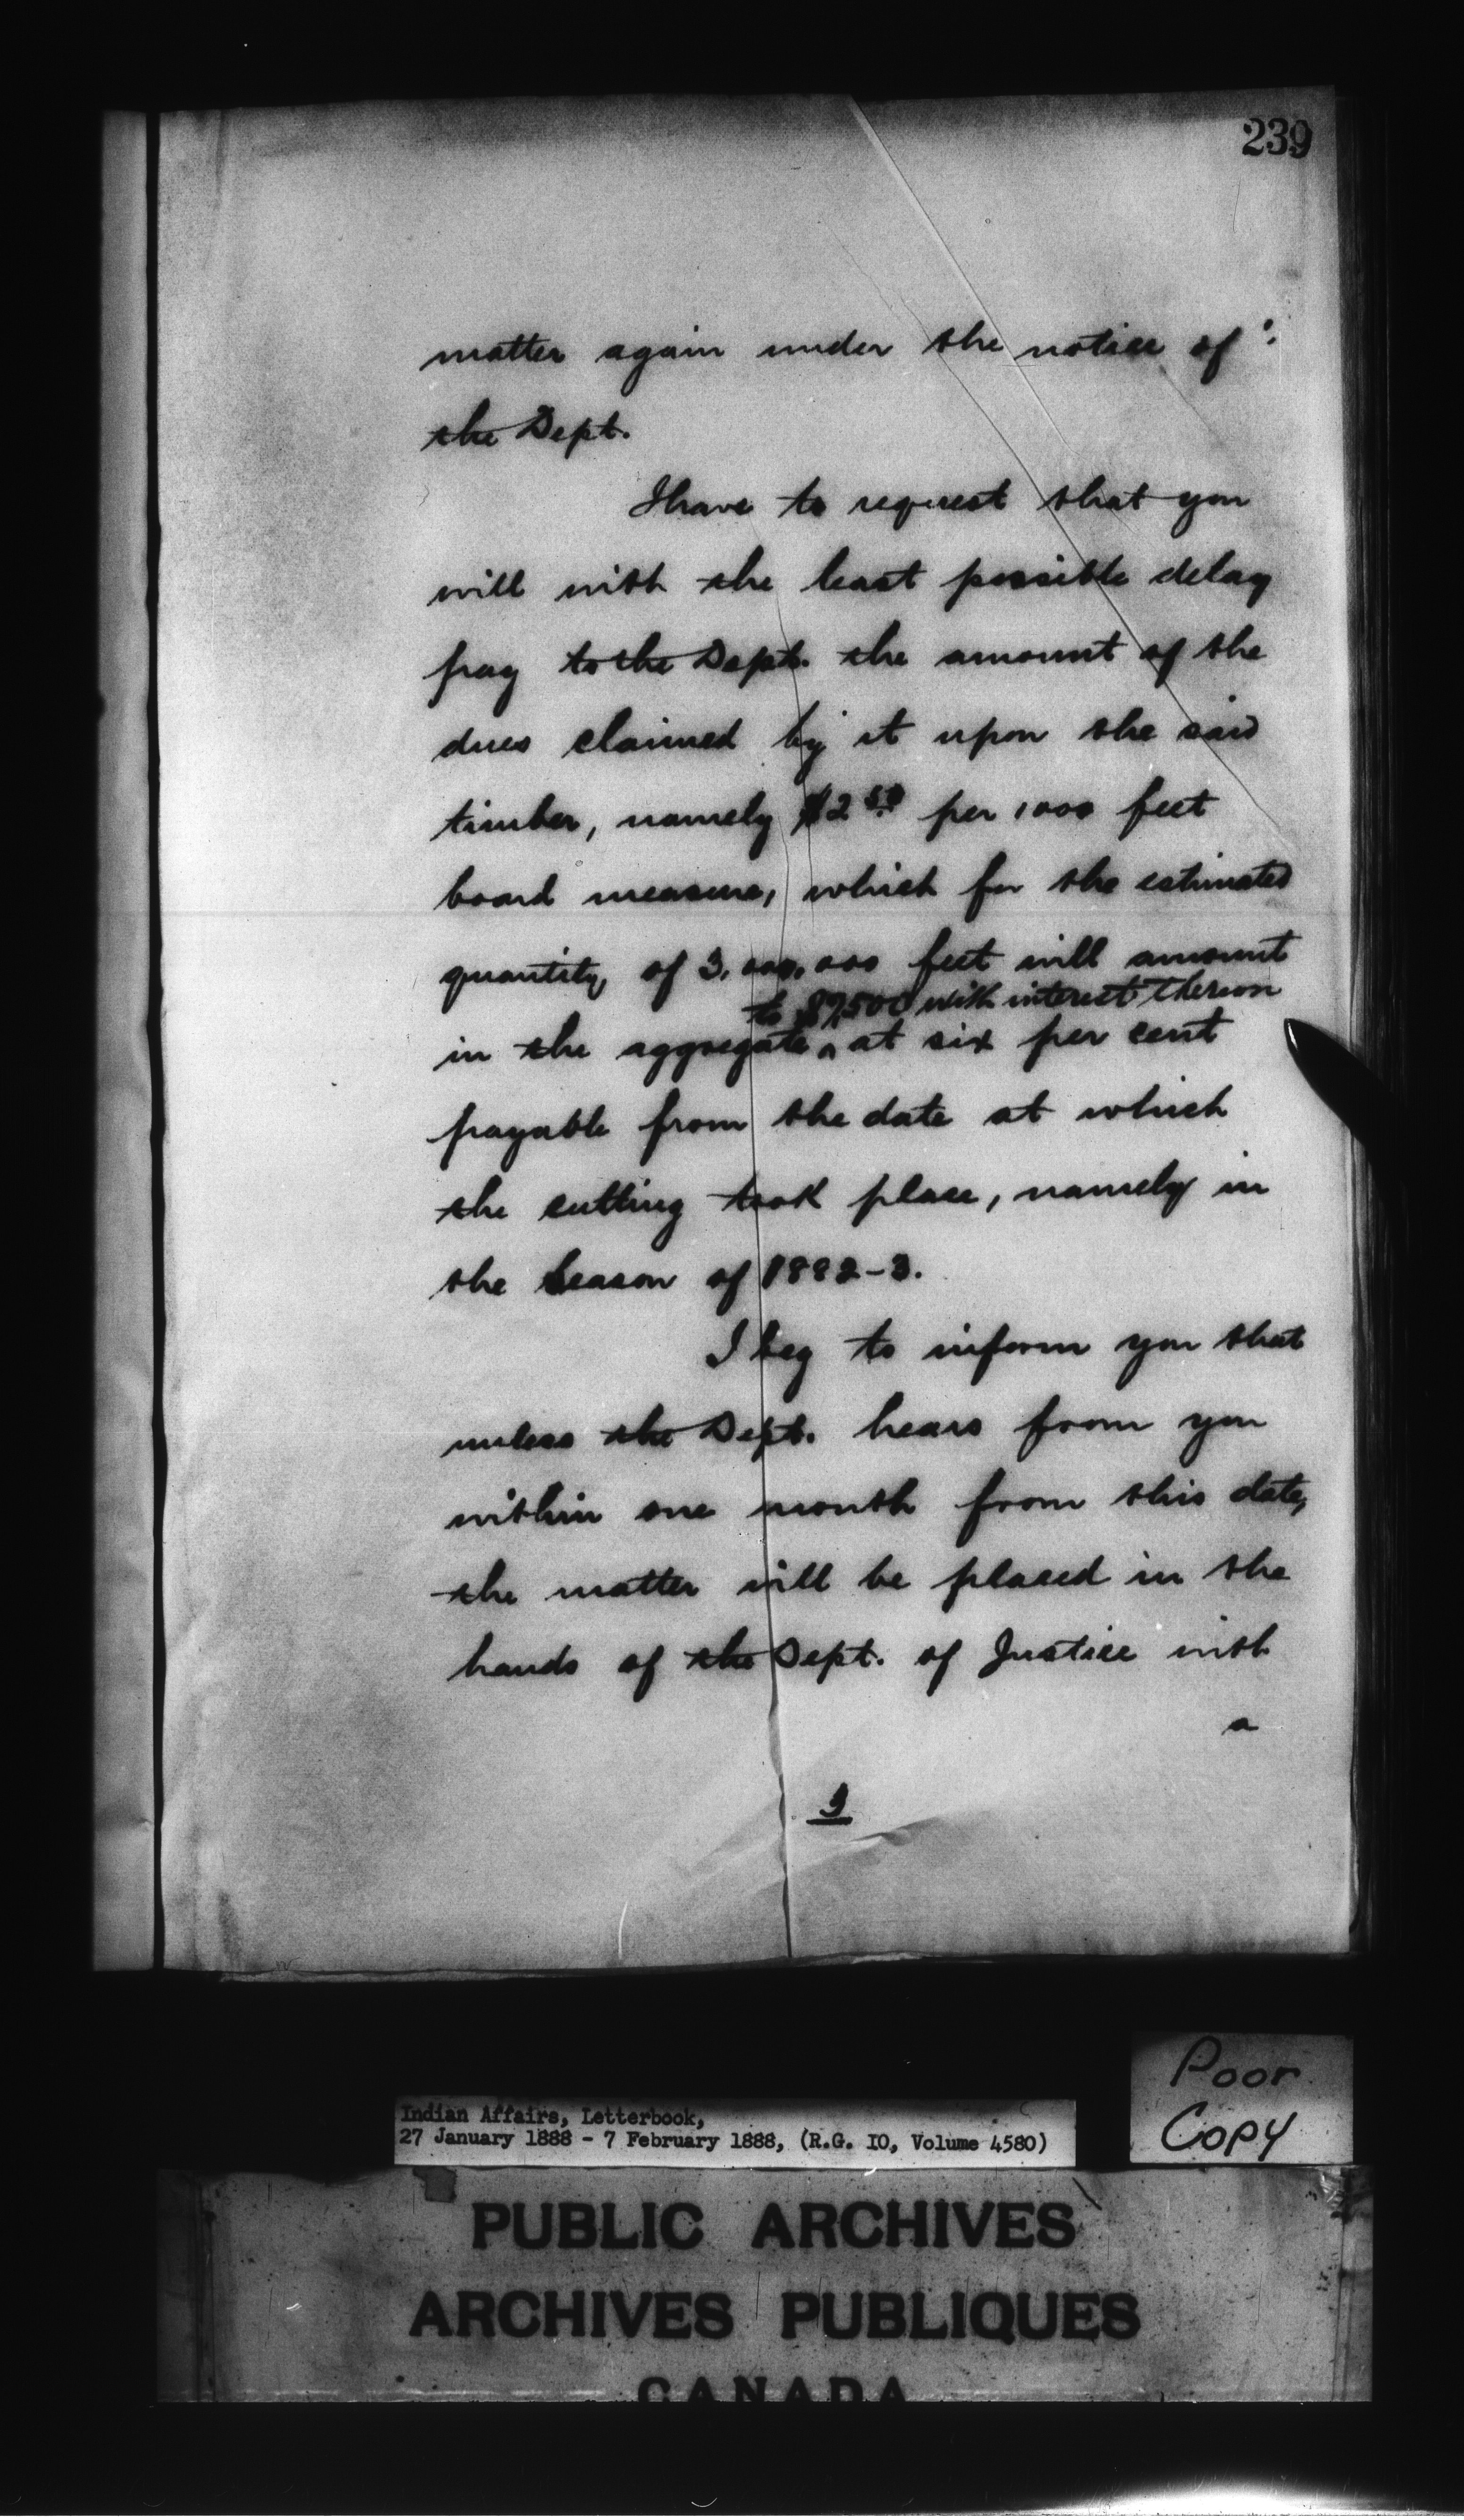 239
matter again under the notice of
the Dept.
I have to request that you
will with the least possible delay
pay to the Dept. the amount of the
dues claimed by it upon the said
timber, namely $2.50 per 1000 feet
board measure, which for the estimated
quantity of 3,000,000 feet will amount
to $7,500 with interest thereon
in the aggregate ^ at six per cent
payable from the date at which
the cutting took place, namely in
the season of 1882-3.
I beg to inform you that
unless the Dept. hears from you
within one month from this date,
the matter will be placed in the
hands of the Dept. of Justice with
a
Poor
Copy
Indian Affairs, Letterbook,
27 January 1888 - 7 February 1888, (R.G. 10, Volume 4580)
PUBLIC ARCHIVES
ARCHIVES PUBLIQUES
CANADA